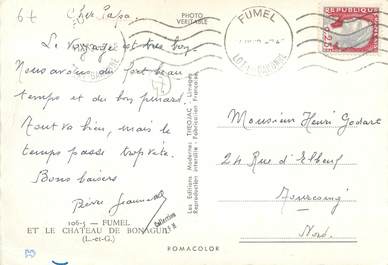 6+
Cher Papa
Le voyage est très bon.
Nous avons du fort beau
temps et du bon pinard.
Tout va bien, mais le
temps passe trop vite.
Bons baisers
Pierre
106-5 — FUMEL
ET LE CHATEAU DE BONAGUIL
(L.-et-G.)
PHOTO
VÉRITABLE
Les Editions Modernes "THEOJAC", Limoges
Reproduction interdite - Fabrication Française
Collection
ROMACOLOR
FUMEL
LOT-ET-GARONNE
REPUBLIQUE
0,25
Monsieur Henri Godart
24 Rue d'Elbeuf
Tourcoing
Nord.